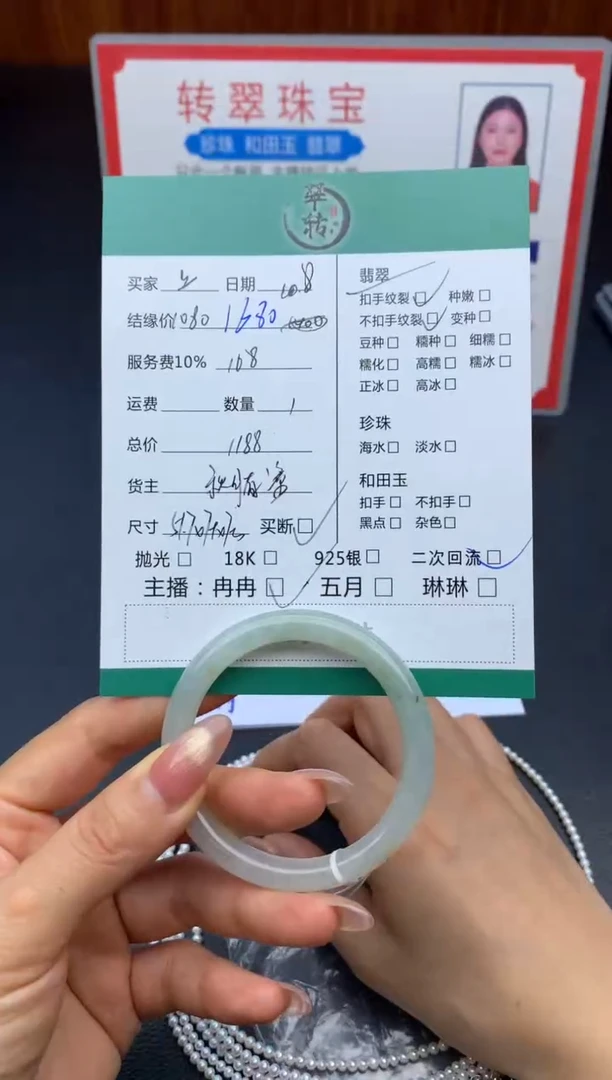 转翠珠宝
珍珠 和田玉 翡翠
翠
转
买家 日期 10.8
结缘价 1080 1680
服务费10% 108
运费 数量 1
总价 1188
货主
尺寸 买断□
翡翠
扣手纹裂□ 种嫩□
不扣手纹裂□ 变种□
豆种□ 糯种□ 细糯□
糯化□ 高糯□ 糯冰□
正冰□ 高冰□
珍珠
海水□ 淡水□
和田玉
扣手□ 不扣手□
黑点□ 杂色□
抛光□ 18K□ 925银□ 二次回流□
主播：冉冉□ 五月□ 琳琳□